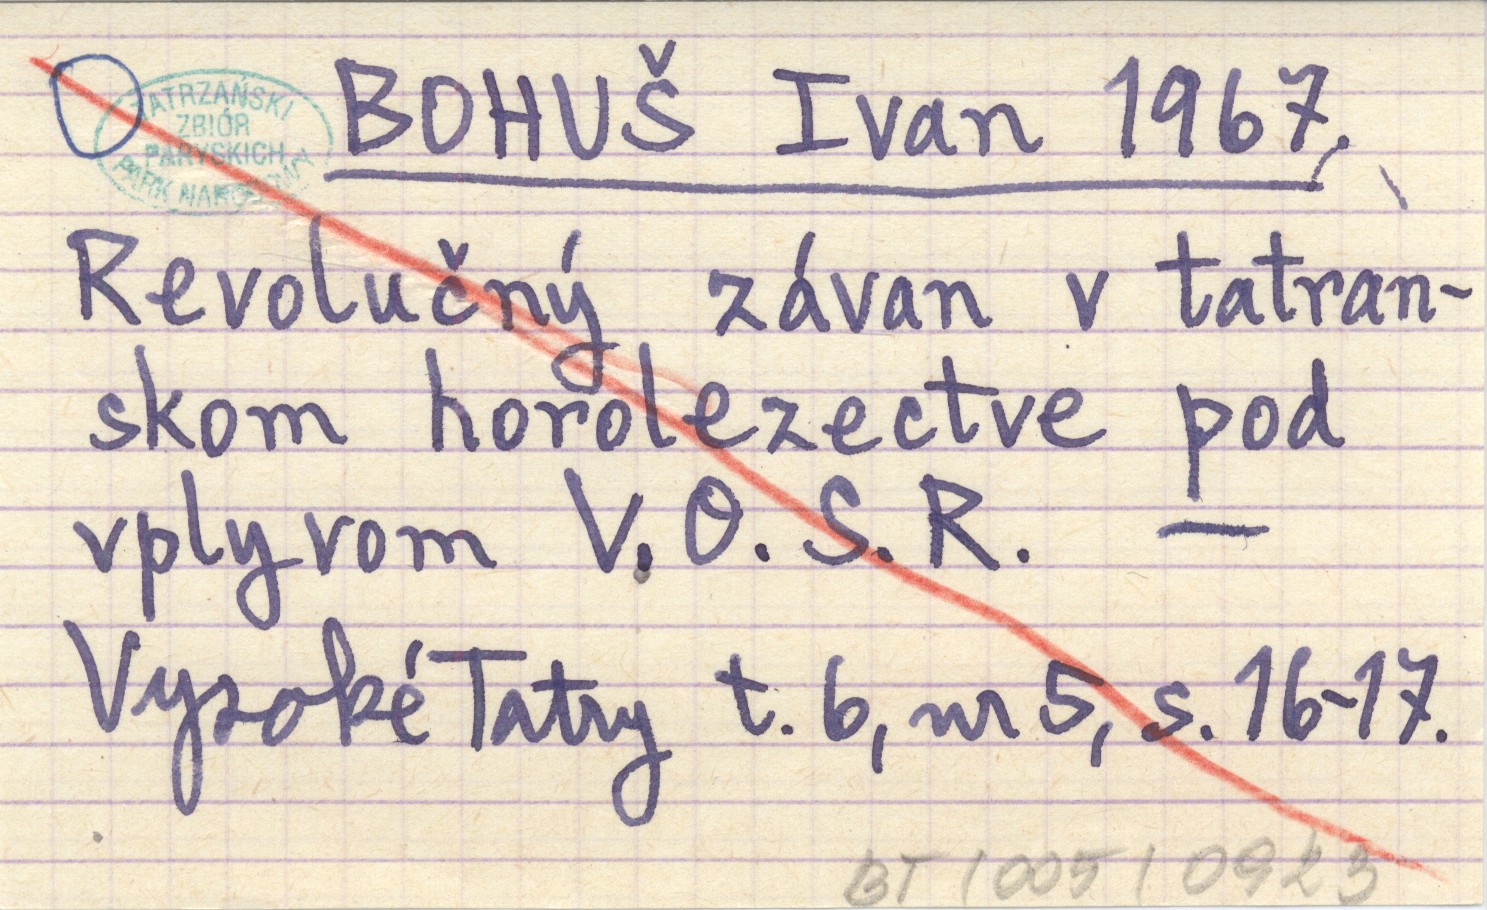 BOHUŠ Ivan 1967.
Revolučný závan v tatran-
skom horolezectve pod
vplyvom V.O.S.R. —
Vysoké Tatry t. 6, nr 5, s. 16-17.
TATRZAŃSKI
ZBIÓR
PARYSKICH
PARK NARODOWY
BT / 005 / 0923